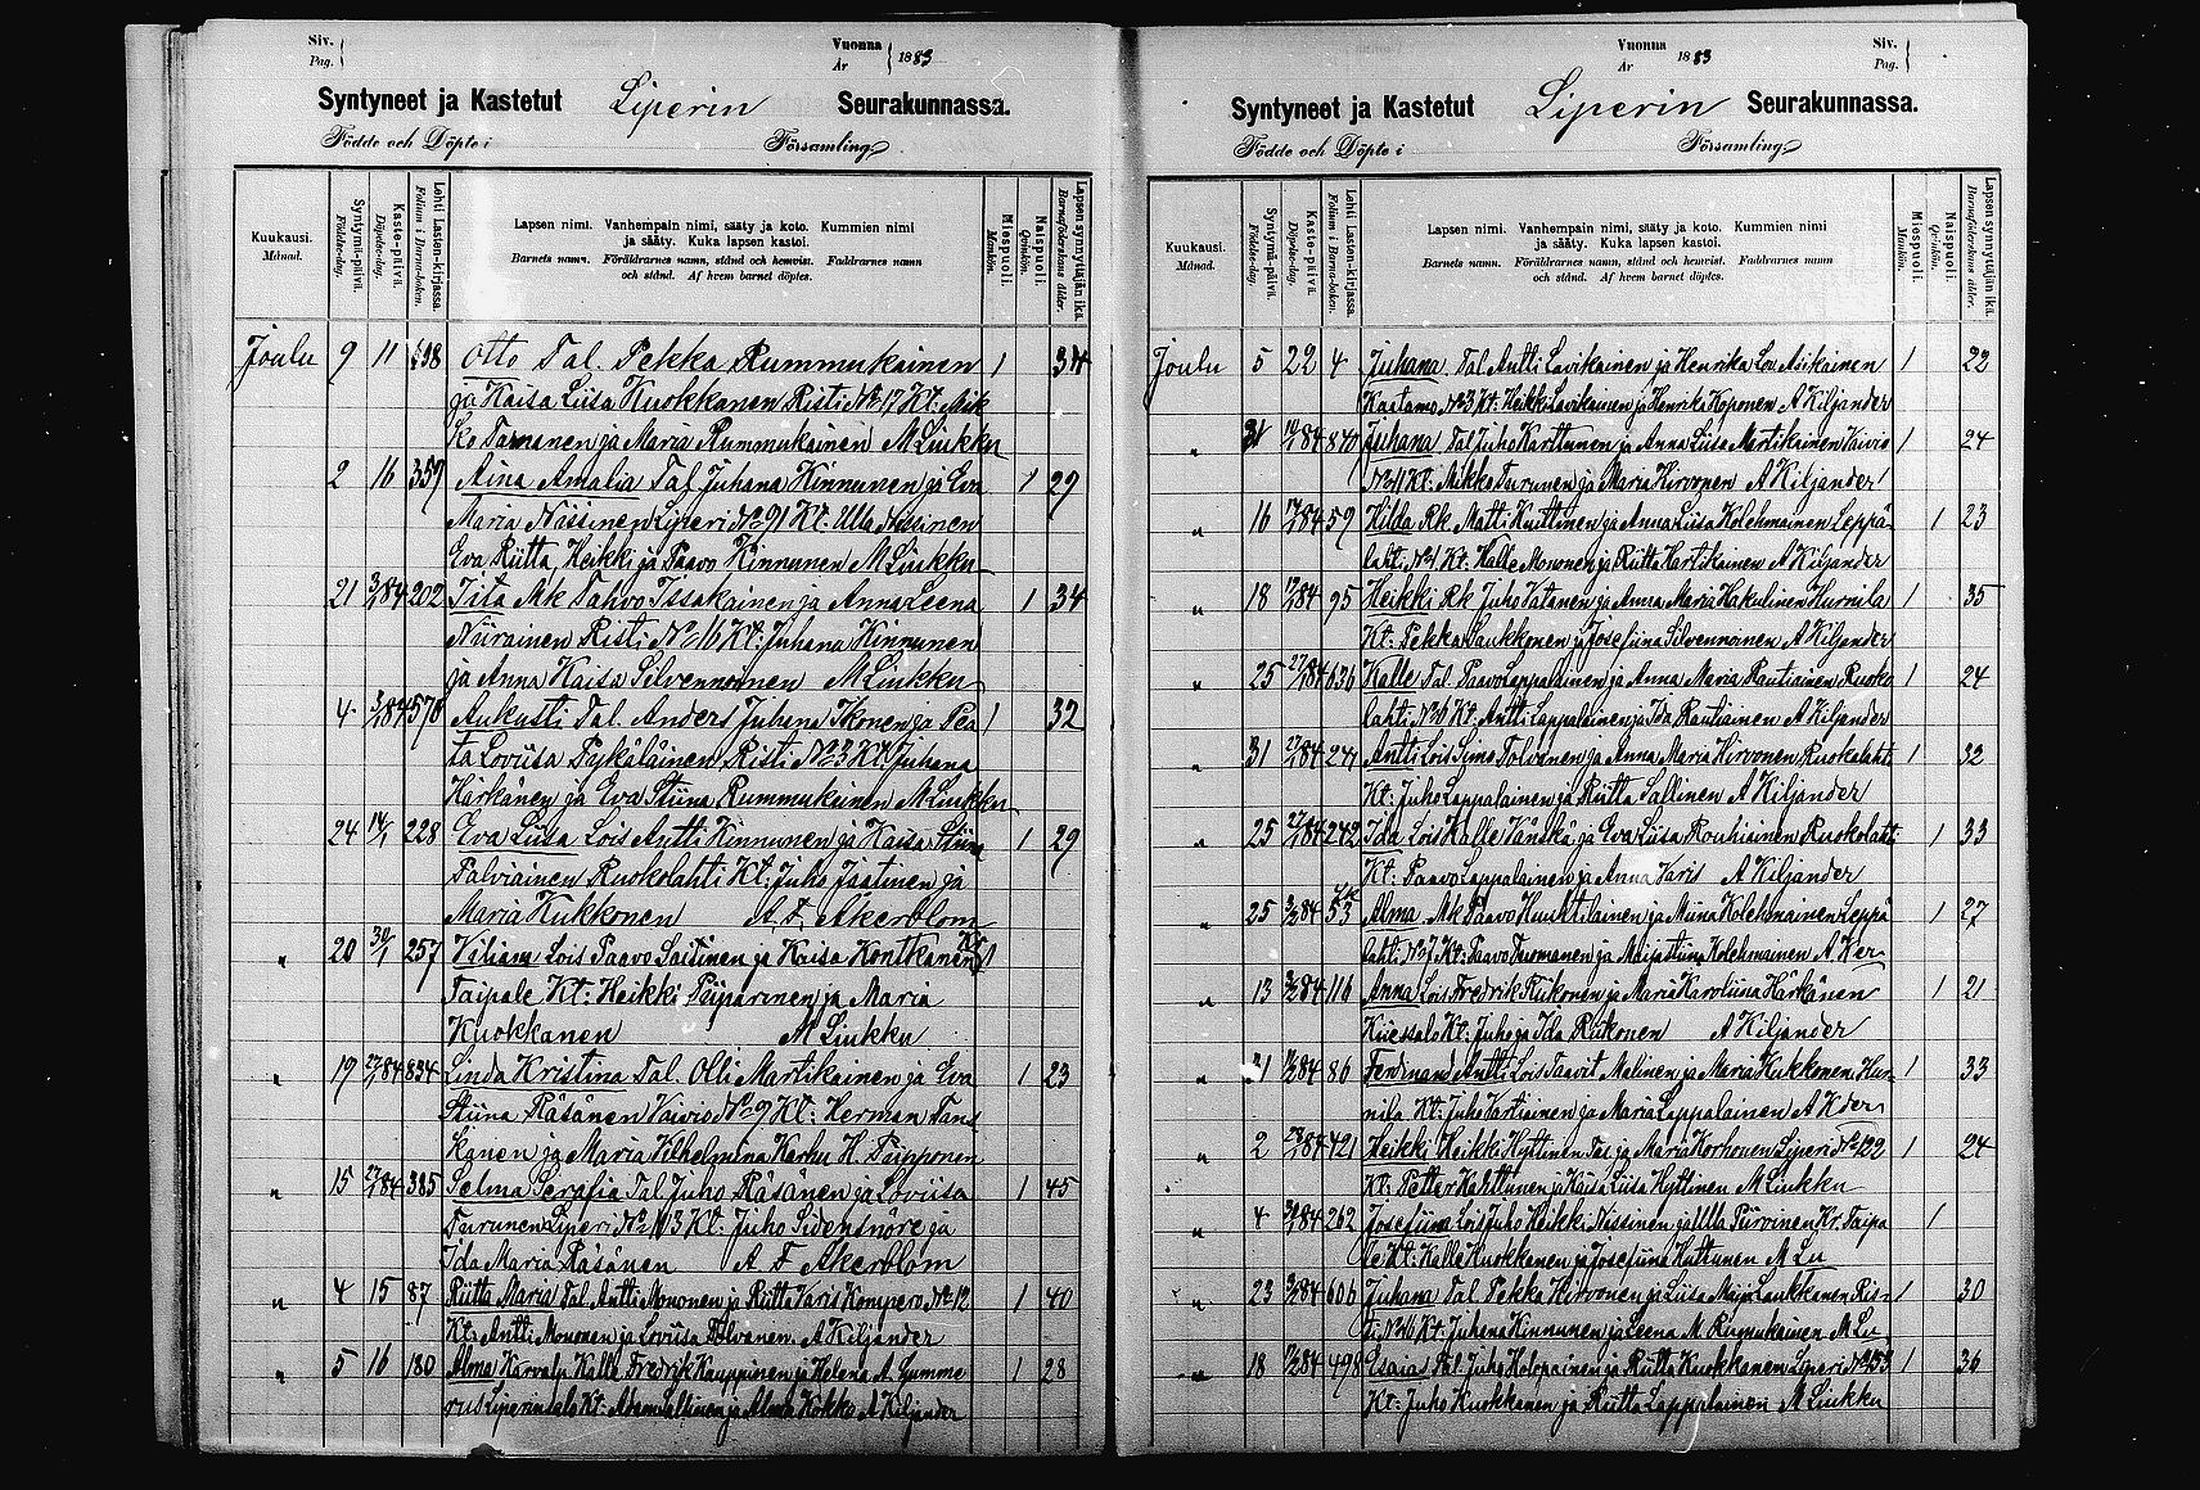 Siv.
Pag.
Vuonna
År
1883
Syntyneet ja Kastetut Liperin Seurakunnassa.
Födde och Döpte i Församling.
Kuukausi.
Månad.
Syntymä-päivä.
Födelse-dag.
Kaste-päivä.
Döpelse-dag.
Lehti Lasten-kirjassa.
Folium i Barna-boken.
Lapsen nimi. Vanhempain nimi, sääty ja koto. Kummien nimi
ja sääty. Kuka lapsen kastoi.
Barnets namn. Föräldrarnes namn, stånd och hemvist. Faddrarnes namn
och stånd. Af hvem barnet döptes.
Miespuoli.
Mankön.
Naispuoli.
Qvinkön.
Lapsen synnyttäjän ikä.
Barnaföderskans ålder.
Joulu 9 11 698 Otto Tal. Pekka Rummukainen 1 34
ja Kaisa Liisa Kuokkanen Risti No 17 Kt: Mik
ko Tarnanen ja Maria Rummukainen M Liukku
2 16 357 Aina Amalia Tal Juhana Kinnunen ja Eva 1 29
Maria Nissinen Liperi No 91 Kt: Ulla Nissinen
Eva Riitta, Heikki ja Paavo Kinnunen M Liukku
21 3/1 84 202 Iita Mk Tahvo Issakainen ja Anna Leena 1 34
Niirainen Risti No 16 Kt: Juhana Kinnunen
ja Anna Kaisa Silvennoinen M Liukku
4 3/1 84 570 Aukusti Tal. Anders Juhana Ikonen ja Pea 1 32
ta Loviisa Pykäläinen Risti No 3 Kt: Juhana
Härkänen ja Eva Stiina Rummukainen M Liukku
24 14/1 228 Eva Liisa Lois Antti Kinnunen ja Kaisa Stiina 1 29
Palviainen Ruokolahti Kt: Juho Jaatinen ja
Maria Kukkonen A. F. Akerblom
" 20 30/1 257 Viliam Lois Paavo Soitinen ja Kaisa Kontkanen Kr 1
Taipale Kt: Heikki Piiparinen ja Maria
Kuokkanen M Liukku
" 19 27/1 84 834 Linda Kristina Tal. Olli Martikainen ja Eva 1 23
Stiina Räsänen Vaivio No 9 Kt: Herman Tans
kanen ja Maria Vilhelmina Karhu H. Piipponen
" 15 27/1 84 385 Selma Serafia Tal Juho Räsänen ja Loviisa 1 45
Turunen Liperi No 113 Kt: Juho Sidensnöre ja
Ida Maria Räsänen A F Akerblom
" 4 15 87 Riitta Maria Tal Antti Mononen ja Riitta Varis Kompero No 12 1 40
Kt: Antti Mononen ja Loviisa Tolvanen. A Kiljander
" 5 16 180 Alma Karvalp Kalle Fredrik Kauppinen ja Helena A. Gumme 1 28
rus Liperinsalo Kt: Adam Sallinen ja Alma Kokko A Kiljander
Vuonna
År
1883
Siv.
Pag.
Syntyneet ja Kastetut Liperin Seurakunnassa.
Födde och Döpte i Församling.
Kuukausi.
Månad.
Syntymä-päivä.
Födelse-dag.
Kaste-päivä.
Döpelse-dag.
Lehti Lasten-kirjassa.
Folium i Barna-boken.
Lapsen nimi. Vanhempain nimi, sääty ja koto. Kummien nimi
ja sääty. Kuka lapsen kastoi.
Barnets namn. Föräldrarnes namn, stånd och hemvist. Faddrarnes namn
och stånd. Af hvem barnet döptes.
Miespuoli.
Mankön.
Naispuoli.
Qvinkön.
Lapsen synnyttäjän ikä.
Barnaföderskans ålder.
Joulu 5 22 4 Juhana. Tal Antti Lavikainen ja Henrika Lov. Asikainen 1 22
Kaatamo No 3 Kt: Heikki Lavikainen ja Henrika Koponen A Kiljander
" 31 19/1 84 840 Juhana Tal Juho Karttunen ja Anna Liisa Martikainen Vaivio 1 24
No 11 Kt: Mikko Turunen ja Maria Hirvonen A Kiljander
" 16 17/1 84 59 Hilda Rk. Matti Kuittinen ja Anna Liisa Kolehmainen Leppä 1 23
lahti No 1. Kt: Kalle Mononen ja Riitta Martikainen A Kiljander
" 18 17/1 84 95 Heikki Rk Juho Vatanen ja Anna Maria Hakulinen Hurnila 1 35
Kt: Pekka Saukkonen ja Josefiina Silvennoinen A Kiljander
" 25 27/1 84 636 Kalle Tal. Paavo Lappalainen ja Anna Maria Rautiainen Ruoko 1 24
lahti No 6 Kt: Antti Lappalainen ja Ida Rautiainen A Kiljander
" 31 27/1 84 247 Antti Lois Simo Tolvanen ja Anna Maria Hirvonen Ruokolahti 1 32
Kt: Juho Lappalainen ja Riitta Sallinen A Kiljander
" 25 27/1 84 242 Ida Lois Kalle Vänskä ja Eva Liisa Rouhiainen Ruokolahti 1 33
Kt: Paavo Lappalainen ja Anna Varis A Kiljander
" 25 3/2 84 53 Alma. Mk Paavo Huuhtilainen ja Miina Kolehmainen Leppä 1 27
lahti No 7 Kt: Paavo Tuomanen ja Maijastiina Kolehmainen A. Ker
" 13 3/2 84 116 Anna Lois Fredrik Riikonen ja Maria Karoliina Härkänen 1 21
Kiiessalo Kt: Juho ja Ida Riikonen A Kiljander
" 31 84 86 Ferdinand Antti Lois Taavit Malinen ja Maria Kukkonen Hur= 1 33
nila Kt: Juho Vartiainen ja Maria Lappalainen A Kder
" 2 84 421 Heikki Heikki Hyttinen Tal ja Maria Korhonen Liperi No 122 1 24
Kt: Petter Kahttunen ja Kaisa Liisa Hyttinen M Liukku
" 4 84 262 Josefiina Lois Juho Heikki Nissinen ja Ulla Piirvoinen Kr. Taipa 1
le Kt: Kalle Kuokkanen ja Josefiina Huttunen M Lu
" 23 3/2 84 606 Juhana Tal Pekka Hirvonen ja Liisa Maija Laukkanen Ris- 1 30
ti No 16 Kt: Juhana Kinnunen ja Leena M. Rumukainen M Lu
" 18 84 498 Esaias Tal. Juho Holopainen ja Riitta Kuokkanen Liperi No 153 1 36
Kt: Juho Kuokkanen ja Riitta Lappalainen M Liukku